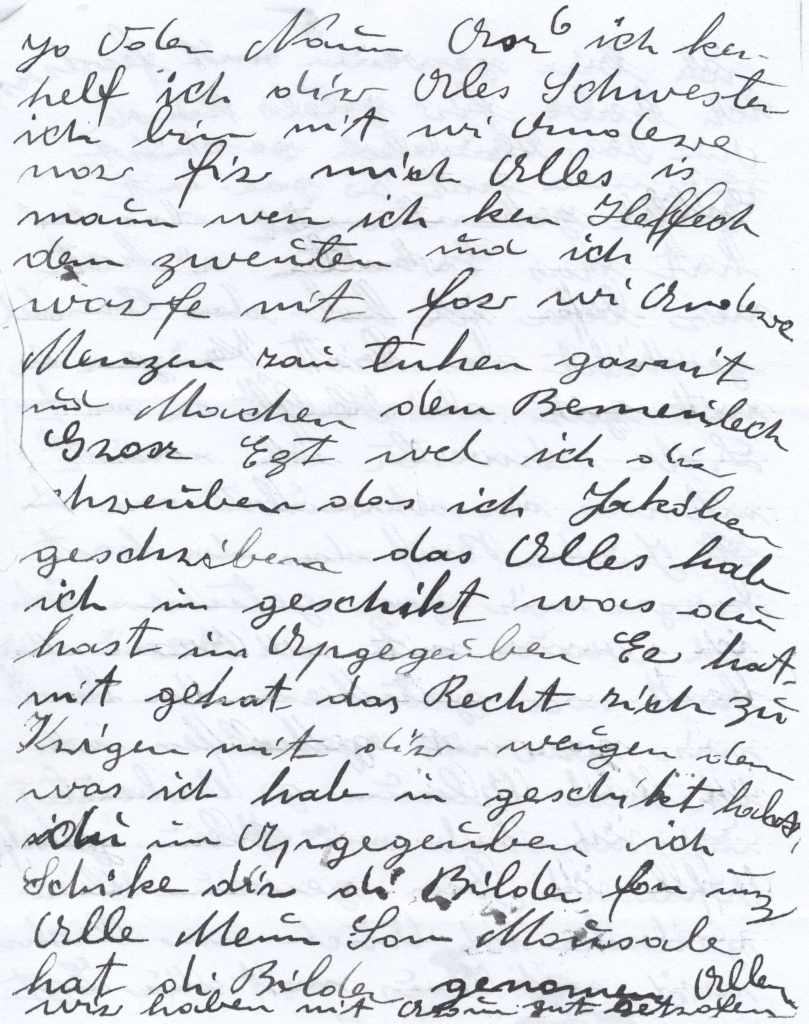 jo oder Nain Oroz 6 ich ken
helf ich dir Alles Schwester
ich bin nit wi Andere
nor fir mich Alles is
main wen ich ken Helfech
dem zweuten und ich
warfe nit for wi Andere
Menzen zain tuhen gornit
und Machen dem
Groz Ezt wel ich dir
schreuben das ich
geschriben das Alles hab
ich im geschikt was du
hast im Apgegeuben Er hat
nit gehat das Recht zich zu
Krigen mit dir weugen dem
was ich hab im geschikt
du im Apgegeuben ich
Schike dir di Bilder fon unz
Alle Mein Son
hat di Bilder genomen Aller
wir haben nit gut